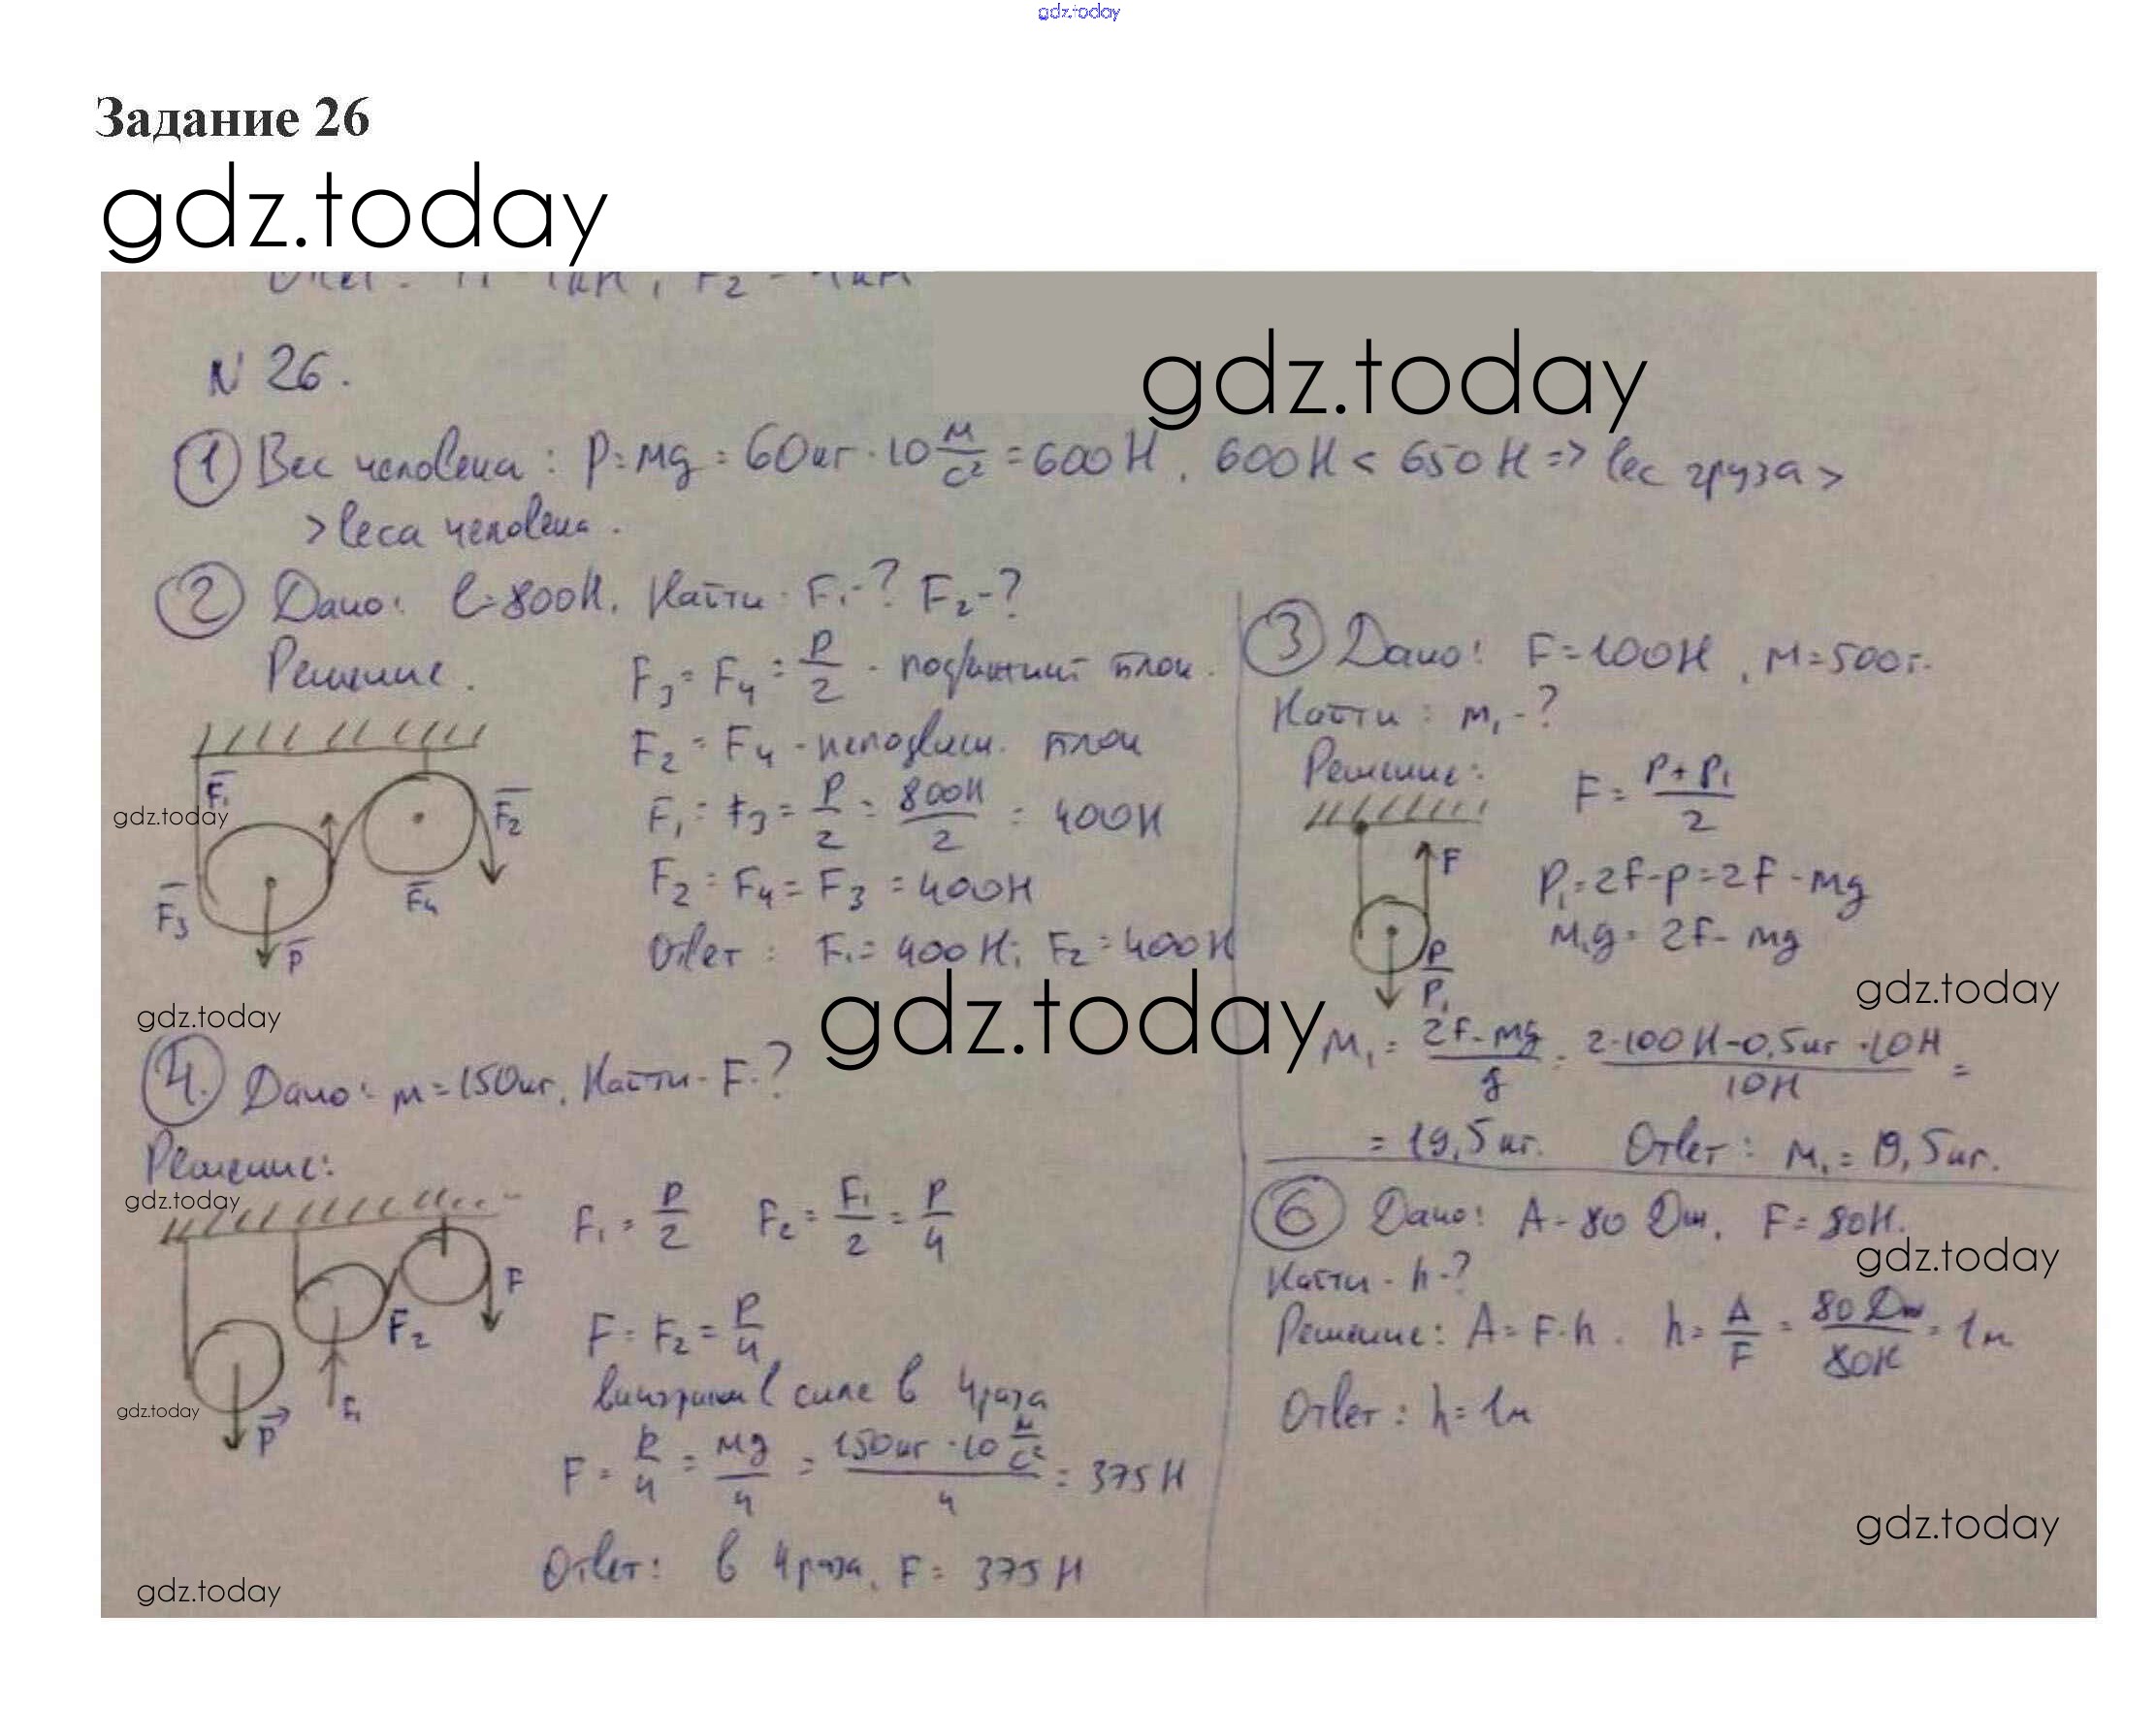 gdz.today
Задание 26
gdz.today
N 26.
gdz.today
1 Вес человека: P = mg = 60 кг · 10 м/с² = 600 Н, 600 Н < 650 Н => вес груза >
> веса человека.
2 Дано: P = 800 Н. Найти - F₁-? F₂-?
Решение.
F₃ = F₄ = P/2 - подвижный блок.
F₂ = F₄ - неподвиж. блок
F₁ = F₃ = P/2 = 800Н/2 = 400 Н
F₂ = F₄ = F₃ = 400 Н
Ответ: F₁ = 400 Н; F₂ = 400 Н
F₁
gdz.today
F₂
F₃
F₄
P
gdz.today
gdz.today
3 Дано: F = 100 Н, m = 500 г.
Найти: m₁-?
Решение:
F = P + P₁/2
P₁ = 2F - P = 2F - mg
m₁g = 2F - mg
F
P
P₁
gdz.today
m₁ = 2F - mg/g = 2·100 Н - 0,5 кг · 10 Н/10 Н =
= 19,5 кг. Ответ: m₁ = 19,5 кг.
4. Дано: m = 150 кг, Найти - F-?
Решение:
gdz.today
F₁ = P/2 F₂ = F₁/2 = P/4
F = F₂ = P/4
выигрыш в силе в 4 раза
F = P/4 = mg/4 = 150 кг · 10 м/с²/4 = 375 Н
Ответ: в 4 раза, F = 375 Н
F
F₂
F₁
gdz.today
P
gdz.today
6 Дано: A = 80 Дж, F = 80 Н.
gdz.today
Найти - h-?
Решение: A = F·h. h = A/F = 80 Дж/80 Н = 1 м
Ответ: h = 1 м
gdz.today